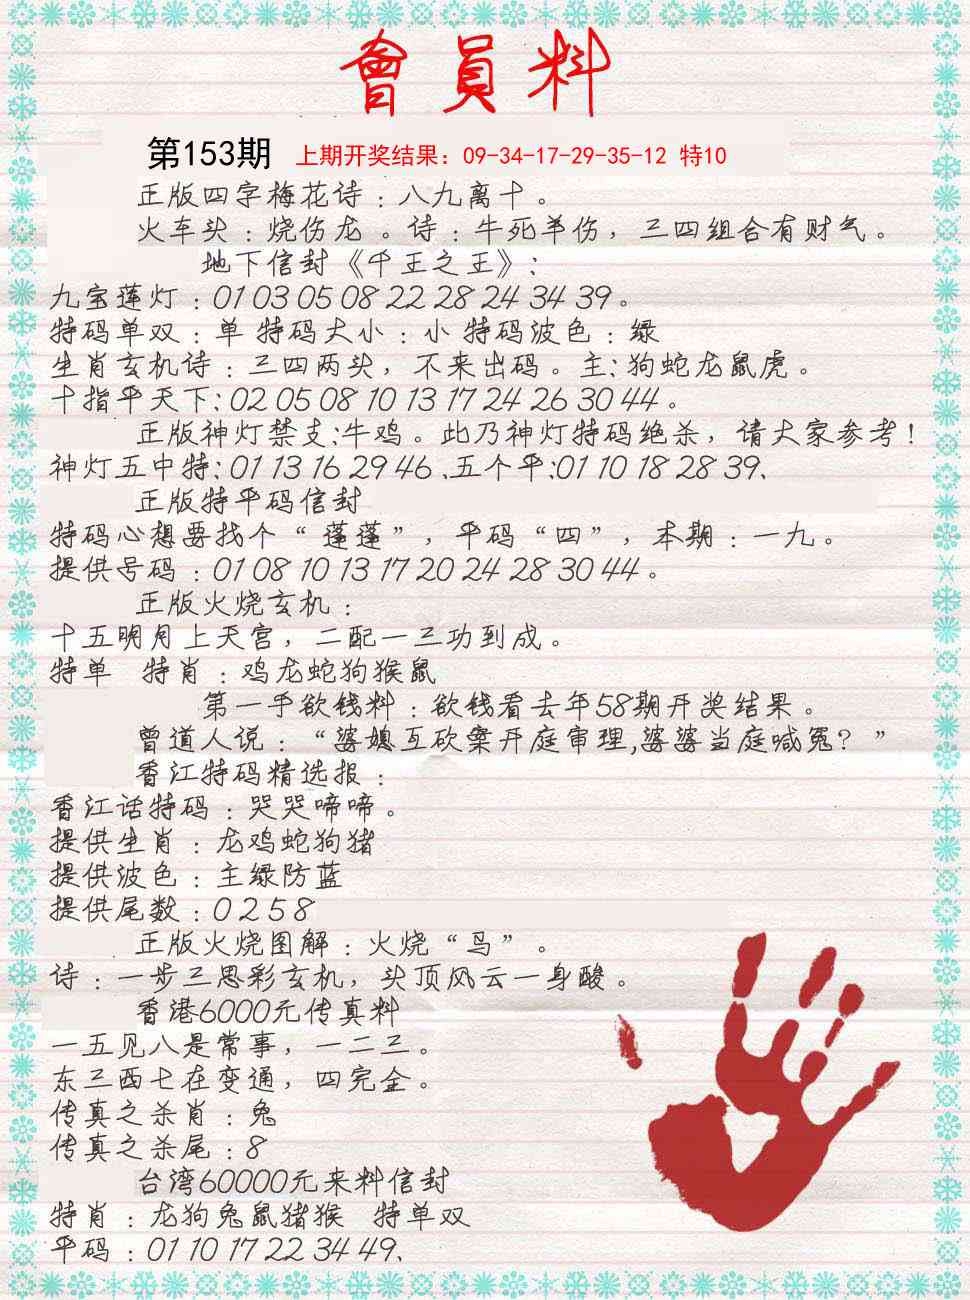 會員料
第153期 上期开奖结果：09-34-17-29-35-12 特10
正版四字梅花诗：八九离十。
火车头：烧伤龙。诗：牛死羊伤，三四组合有财气。
地下信封《千王之王》：
九宝莲灯：01 03 05 08 22 28 24 34 39。
特码单双：单 特码大小：小 特码波色：绿
生肖玄机诗：三四两头，不来出码。主：狗蛇龙鼠虎。
十指平天下：02 05 08 10 13 17 24 26 30 44。
正版神灯禁支：牛鸡。此乃神灯特码绝杀，请大家参考！
神灯五中特：01 13 16 29 46、五个平：01 10 18 28 39、
正版特平码信封
特码心想要找个“蓬蓬”，平码“四”，本期：一九。
提供号码：01 08 10 13 17 20 24 28 30 44。
正版火烧玄机：
十五明月上天宫，二配一三功到成。
特单 特肖：鸡龙蛇狗猴鼠
第一手欲钱料：欲钱看去年58期开奖结果。
曾道人说：“婆媳互砍案开庭审理,婆婆当庭喊冤？”
香江特码精选报：
香江话特码：哭哭啼啼。
提供生肖：龙鸡蛇狗猪
提供波色：主绿防蓝
提供尾数：0 2 5 8
正版火烧图解：火烧“鸟”。
诗：一步三思彩玄机，头顶风云一身酸。
香港6000元传真料
一五见八是常事，一二三。
东三西七在变通，四完全。
传真之杀肖：兔
传真之杀尾：8
台湾60000元来料信封
特肖：龙狗兔鼠猪猴 特单双
平码：01 10 17 22 34 49、